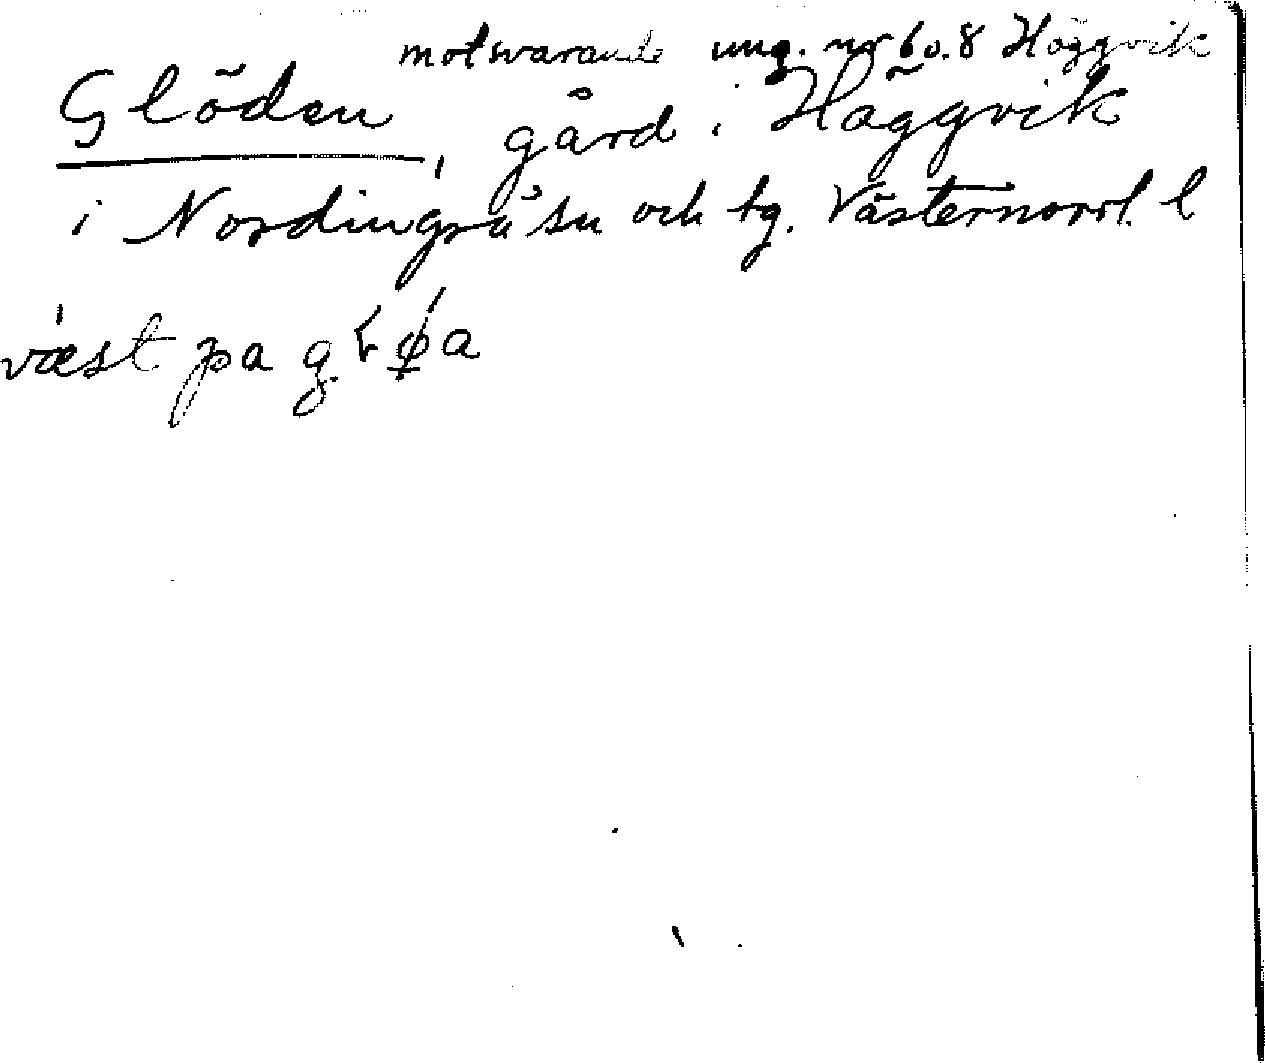 motsvarande ung. nr 6 o. 8 Häggvik
Glöden, gård i Häggvik
i Nordingrå sn och tg. Västernorrl. l
væst pa